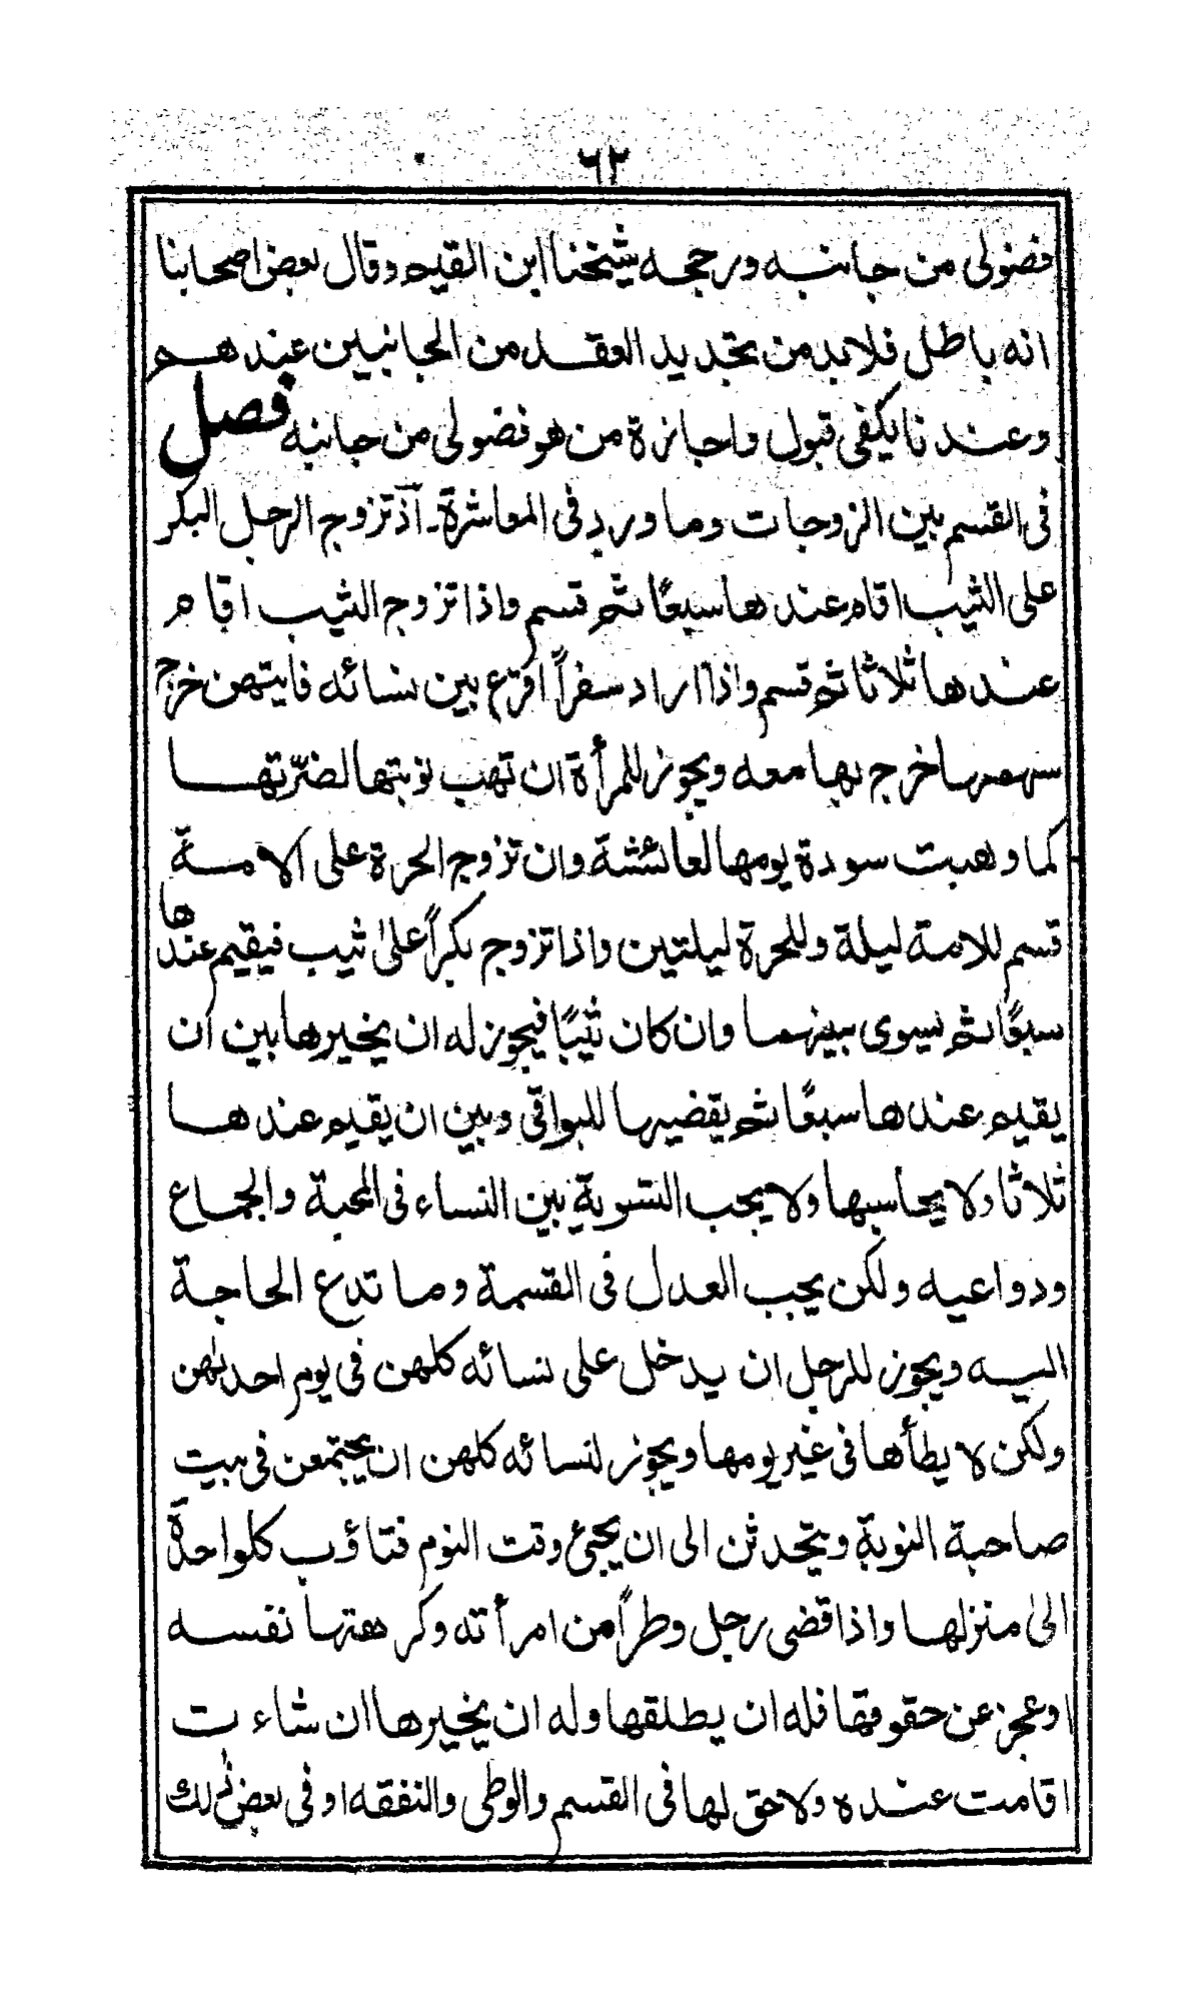 ٦٢
فضولی من جانبه ورجحه شیخنا ابن القیم وقال بعض اصحابنا
انه باطل فلابد من تجدید العقد من الجانبین عندهم
وعندنا یکفی قبول واجازة من هو فضولی من جانبه فصل
فی القسم بین الزوجات وما ورد فی المعاشرة۔ اذا تزوج الرجل البکر
علی الثیب اقام عندها سبعًا ثم قسم واذا تزوج الثیب اقام
عندها ثلاثا ثم قسم واذا اراد سفراً اقرع بین نسائه فایتهن خرج
سهمها خرج بها معه ویجوز للمرأة ان تهب نوبتها لضرّتها
کما وهبت سودة یومها لعائشة وان تزوج الحرة علی الامة
قسم للامة لیلة وللحرة لیلتین واذا تزوج بکراً علیٰ ثیب فیقیم عندها
سبعًا ثم یسوی بینهما وان کان ثیبًا فیجوز له ان یخیرها بین ان
یقیم عندها سبعًا ثم یقضیها للبواقی وبین ان یقیم عندها
ثلاثا ولا یحاسبها ولا یجب التسویة بین النساء فی المحبة والجماع
ودواعیه ولکن یجب العدل فی القسمة وما تدع الحاجة
الیه ویجوز للرجل ان یدخل علی نسائه کلهن فی یوم احدٰهن
ولکن لا یطأها فی غیر یومها ویجوز لنسائه کلهن ان یجتمعن فی بیت
صاحبة النوبة ویتحدثن الی ان یجئ وقت النوم فتاؤب کلواحدة
الیٰ منزلها واذا قضی رجل وطراً من امرأته وکرهتها نفسه
اوعجز عن حقوقها فله ان یطلقها وله ان یخیرها ان شاءت
اقامت عنده ولا حق لها فی القسم والوطی والنفقه او فی بعض ذٰلك